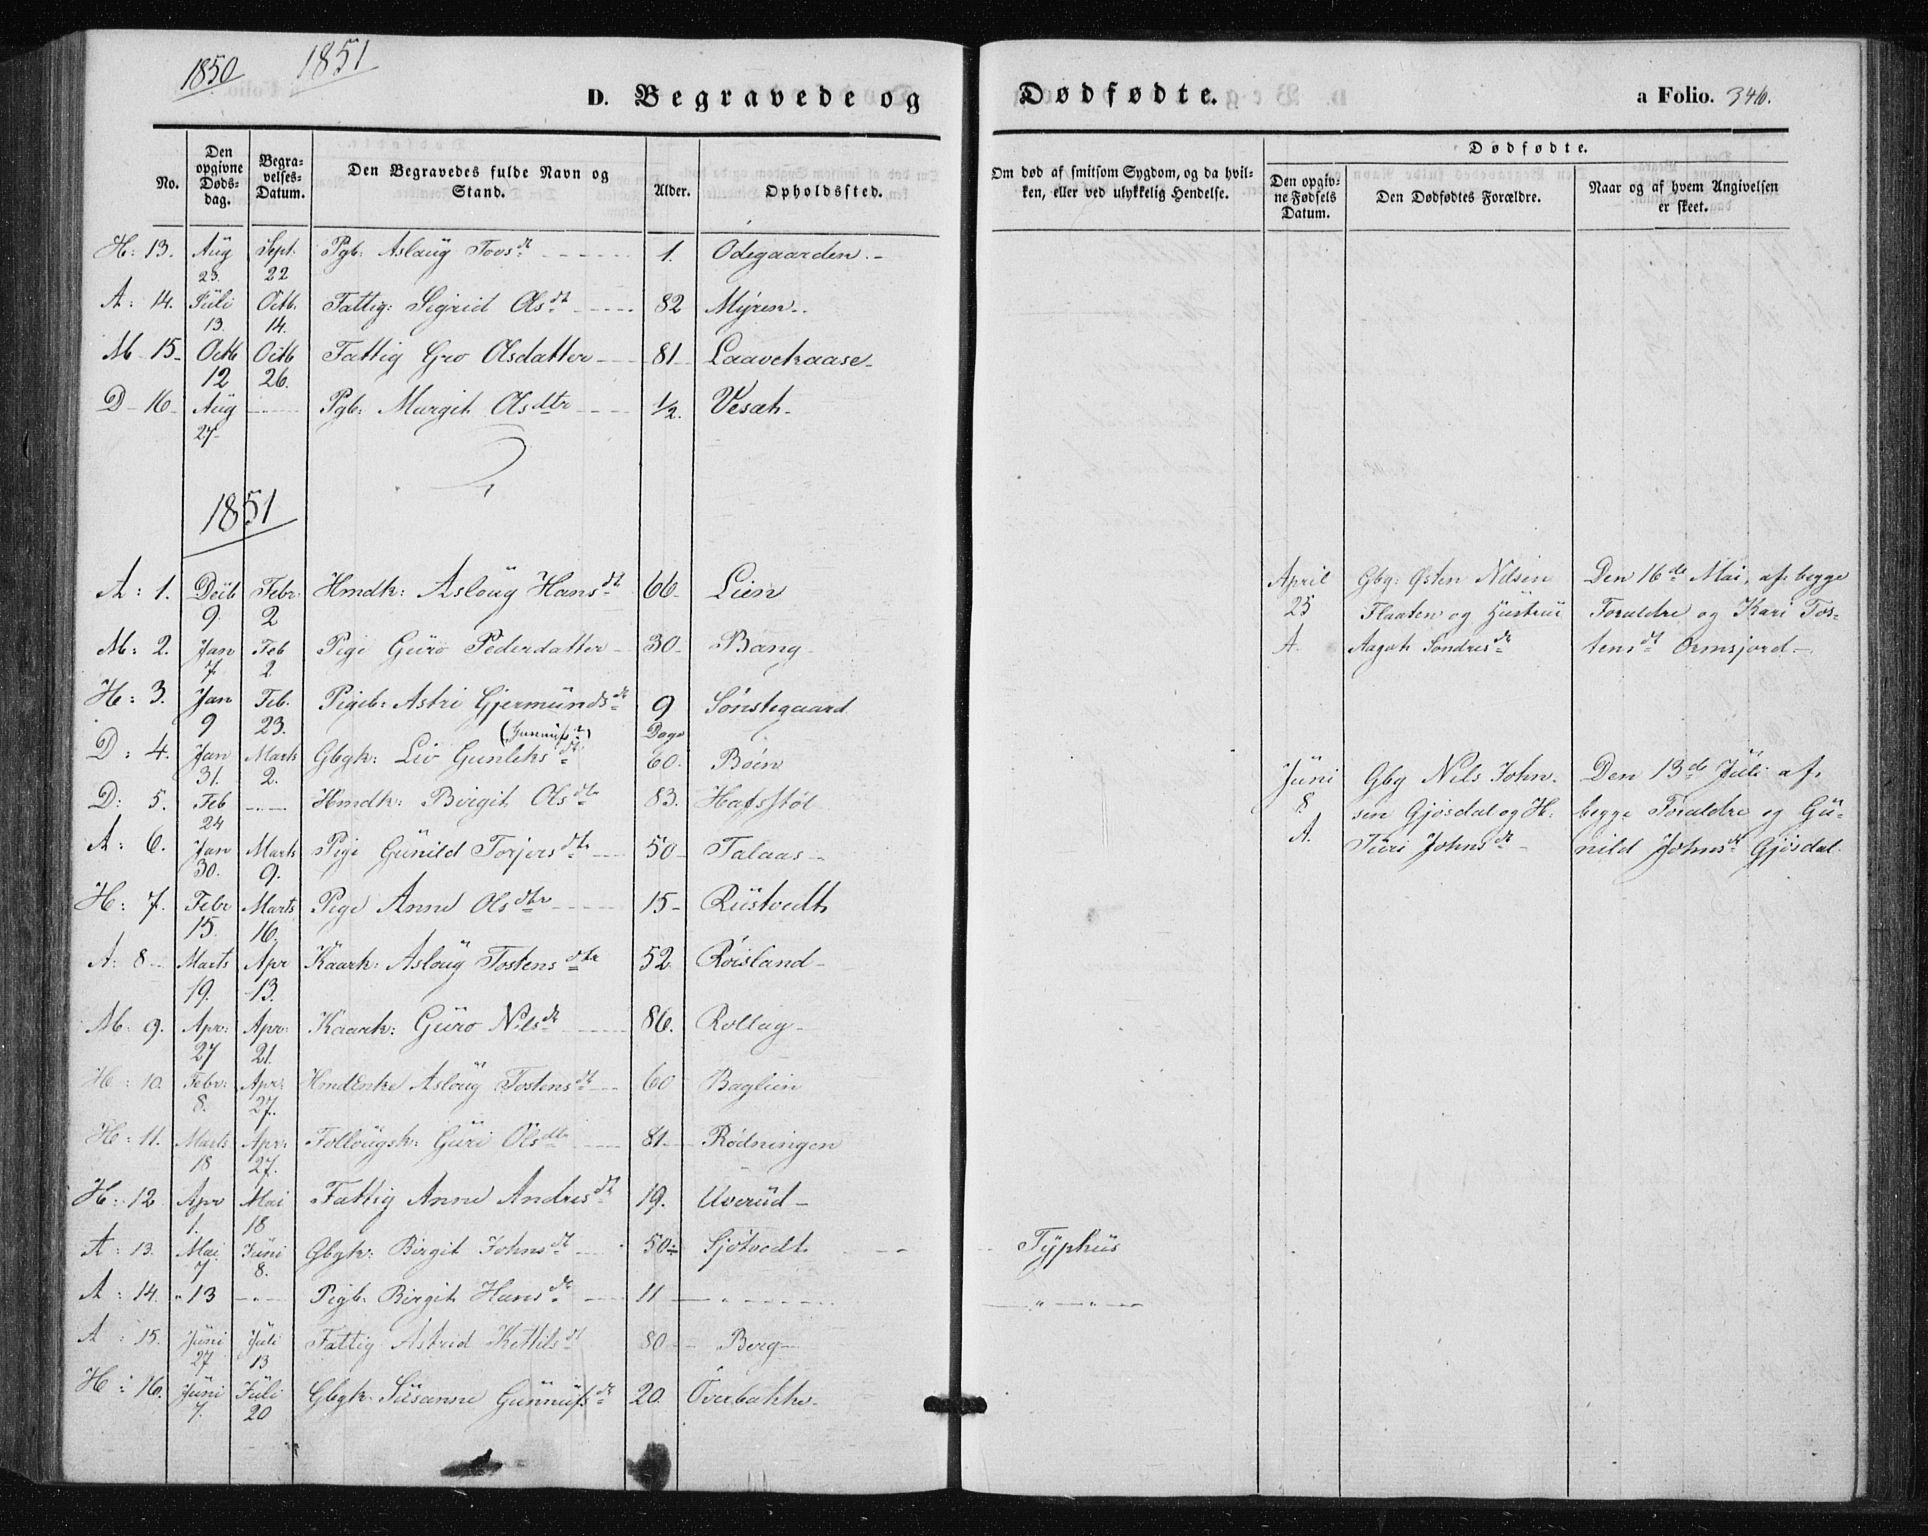 1850 1851
D. Begravede og Dødfødte. a Folio. 346.
No. Den opgivne Døds-dag. Begra-velses-Datum. Den Begravedes fulde Navn og Stand. Alder. Opholdssted. Om død af smitsom Sygdom, og da hvil-ken, eller ved ulykkelig Hendelse.
Dødfødte.
Den opgiv-ne Fødsels Datum. Den Dødfødtes Forældre. Naar og af hvem Angivelsen er skeet.
H: 13. Aug 23. Sept. 22 Pgb: Aslaug Tovsdt 1. Ødegaarden.
A: 14. Juli 13. Octb. 14. Fattig: Sigrid Olsdt 82 Myren.
M 15 Octb 12 Octb 26. Fattig Gro Olsdatter 81
D 16 Aug 27 Pgb: Margit Olsdtr 1/2.
1851
A: 1. Dcb 9. Febr: 2 Hmdk: Asloug Hansdt 66 Lien
M: 2. Jan 7. Feb 2 Pige Guro Pederdatter 30 Bang
H: 3. Jan 9 Feb. 23. Pigeb: Astri Gjermundsdt 9 Dage Sønstegaard
D: 4. Jan 31. Marts 2. Gbgk: Liv Gunleksdt 60. Bøen
D: 5. Feb 24 Hmdk: Birgit Olsdtr 83.
A: 6. Jan 30. Marts 9. Pige Gunild Torjersdtr 50 Talaas
H: 7. Febr 15. Marts 16. Pige Anne Olsdtr 15 Rustvedt
A: 8 Marts 19. Apr 13. Kaark: Asloug Tostensdtr 52. Røisland
M: 9. Apr: 27 Apr: 21. Kaark: Guro Nilsdt 86. Rollag
H: 10. Febr: 8. Apr: 27. HmdEnke Asloug Tostensdt 60 Baglien
H: 11. Marts 18 Apr: 27. Follougsk: Guri Olsdtr 81 Rødningen
H: 12 Apr 1. Mai 18 Fattig Anne Andresdt 19. Uverud
A: 13. Mai 7 Juni 8. Gbgk: Birgit Johnsdt 50 Sjøtvedt Typhus
A: 14. " 13 Pigb. Birgit Hansdt 11 "
A: 15. Juni 27 Juli 13 Fattig Astrid Kettilsdt 80 Berg
H: 16. Juni 7. Juli 20 Gbgk: Susanne Gunnufsdt 20. Overbakke
April 25 A. Gbg: Østen Nilsen Flaaten og Hustrue Aagot Sondresdt
Den 16de Mai, af begge Foraldre og Kari Tos-tensdt Ormsjord
Juni 8 A. Gbg Nils John-sen Gjøsdal og H: Turi Johnsdt
Den 13de Juli af begge Foraldre og Gu-nild Johnsdt Gjøsdal